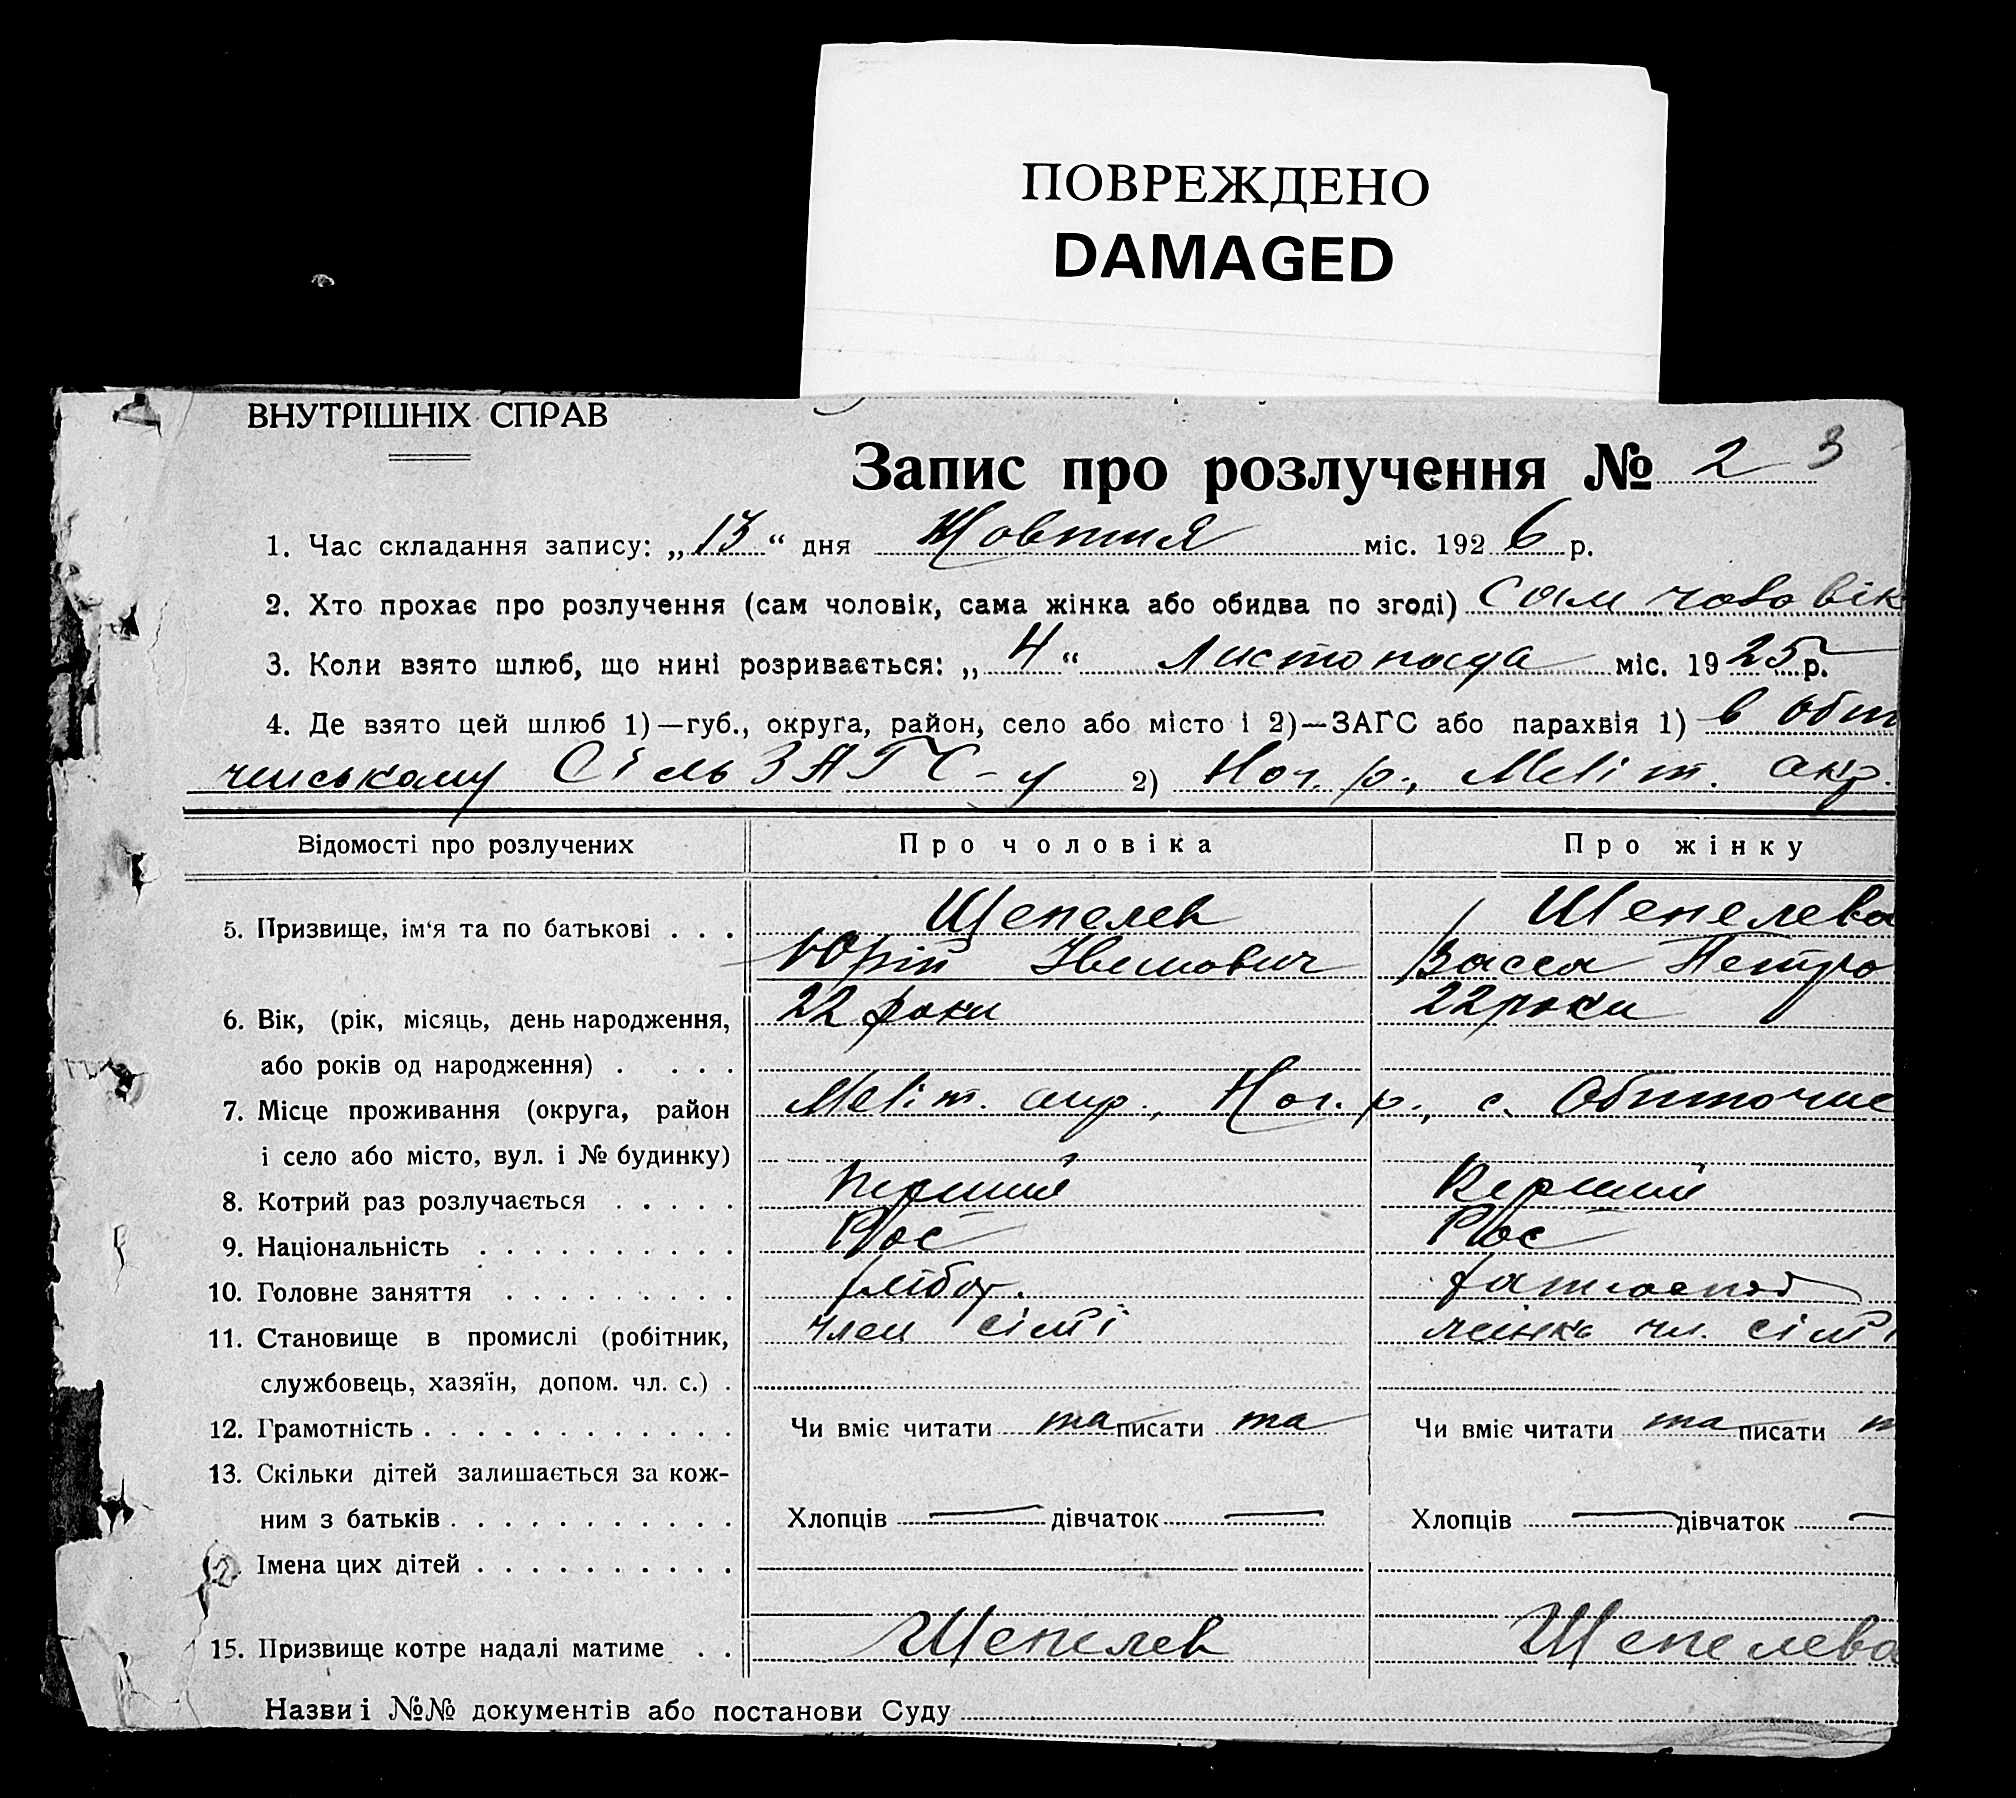 ПОВРЕЖДЕНО
DAMAGED
ВНУТРІШНІХ СПРАВ
Запис про розлучення № 2 3
1. Час складання запису: „13“ дня Жовтня міс. 1926 р.
2. Хто прохає про розлучення (сам чоловік, сама жінка або обидва по згоді) Сам чоловік
3. Коли взято шлюб, що нині розривається: „4“ Листопада міс. 1925 р.
4. Де взято цей шлюб 1)—губ., округа, район, село або місто і 2)—ЗАГС або парахвія 1) в Обит
ченському СільЗАГС-у 2) Ног. р., Меліт. окр.
Відомості про розлучених Про чоловіка Про жінку
5. Призвище, ім‘я та по батькові . . . Щепелев Щепелева
Юрій Васса Петро
6. Вік, (рік, місяць, день народження, 22 роки 22 роки
або років од народження) . . . .
7. Місце проживання (округа, район Меліт. окр., Ног. р., с. Обиточне
і село або місто, вул. і № будинку)
8. Котрий раз розлучається . . . . . Перший Перший
9. Національність . . . . . . . . . . Рос Рос
10. Головне заняття . . . . . . . . . хлібор.
11. Становище в промислі (робітник, член сімї жінка чл. сімї
службовець, хазяїн, допом. чл. с.) .
12. Грамотність . . . . . . . . . . . . Чи вміє читати та писати та Чи вміє читати та писати т
13. Скільки дітей залишається за кож-
ним з батьків . . . . . . . . . . . Хлопців — дівчаток — Хлопців — дівчаток —
Імена цих дітей . . . . . . . . . .
15. Призвище котре надалі матиме . . Щепелев Щепелева
Назви і №№ документів або постанови Суду